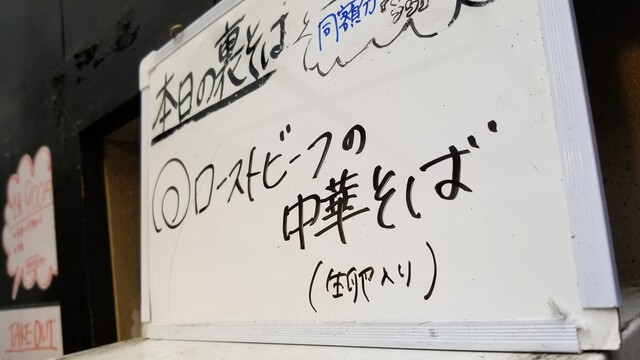 本日の裏そば
同額
ローストビーフの
中華そば
(生卵入り)
TAKE OUT